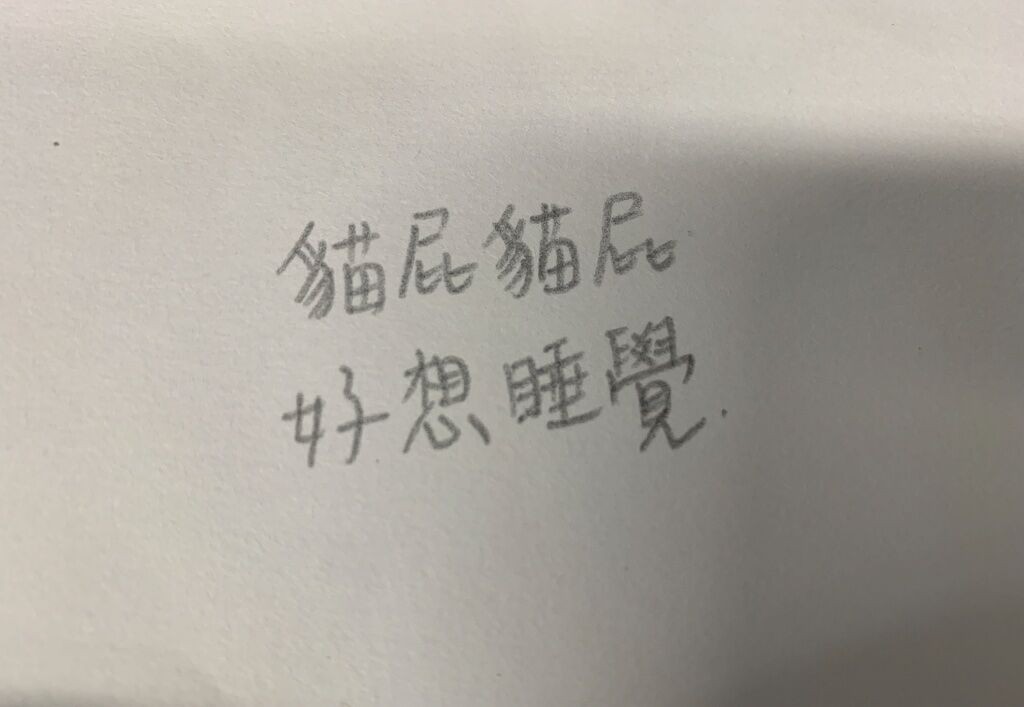 貓屁貓屁
好想睡覺.